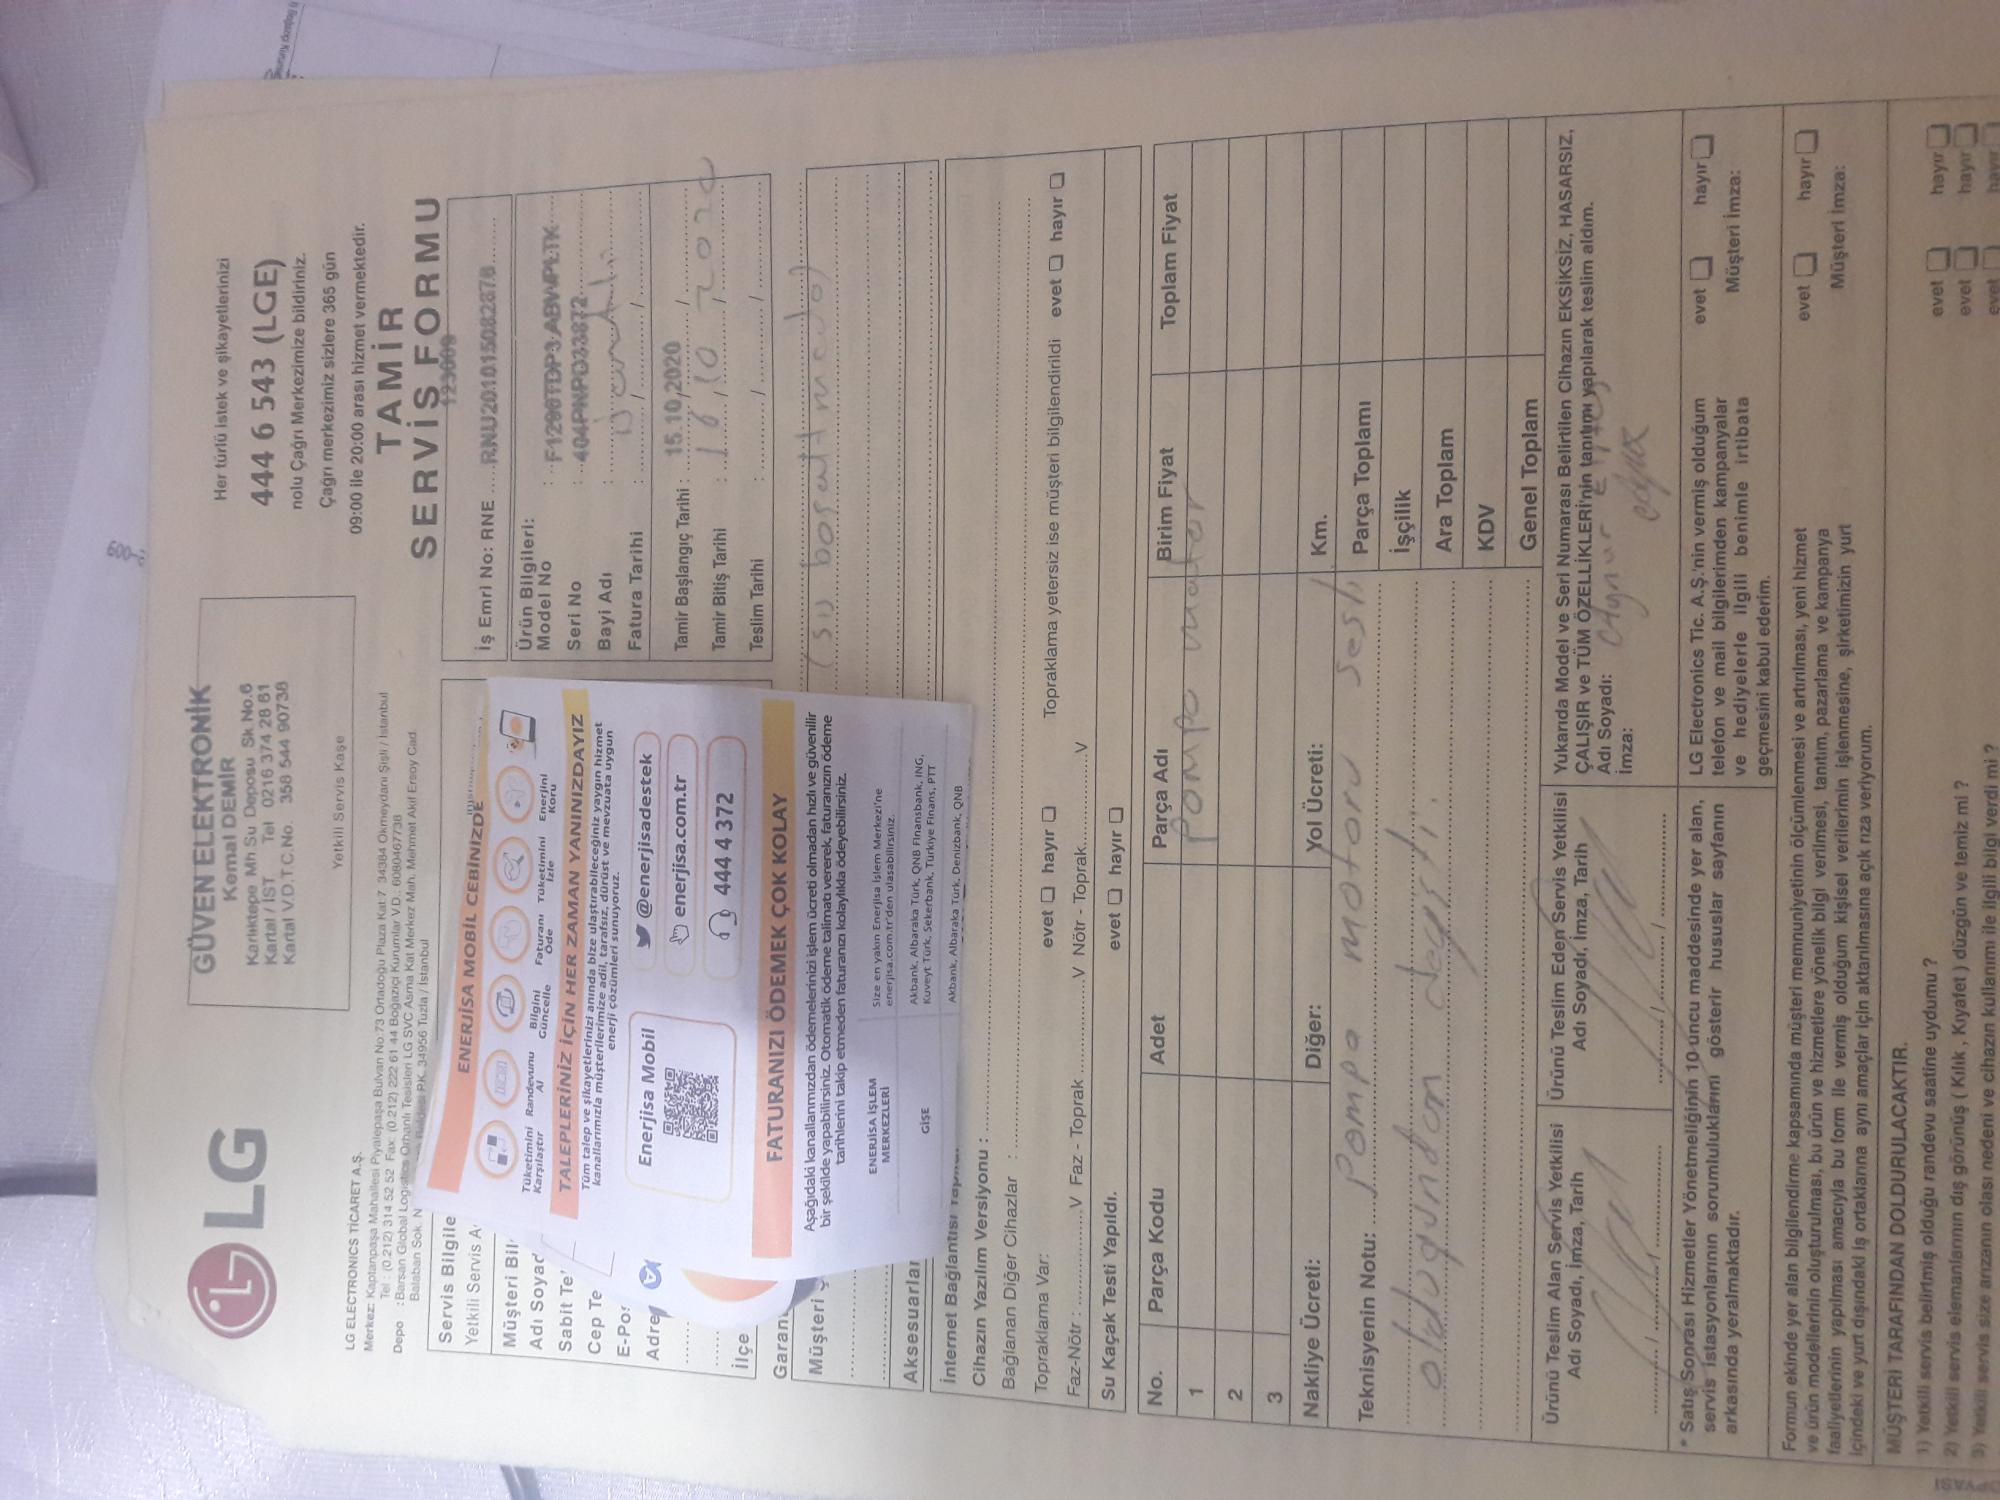 LG
GÜVEN ELEKTRONİK
Kemal DEMİR
Karlıktepe Mh Su Deposu Sk.No.6
Kartal / İST Tel 0216 374 28 61
Kartal V.D.T.C.No. 358 544 90738
Yetkili Servis Kaşe
Her türlü istek ve şikayetlerinizi
444 6 543 (LGE)
nolu Çağrı Merkezimize bildiriniz.
Çağrı merkezimiz sizlere 365 gün
09:00 ile 20:00 arası hizmet vermektedir.
LG ELECTRONICS TİCARET A.Ş.
Merkez: Kaptanpaşa Mahallesi Piyalepaşa Bulvarı No:73 Ortadoğu Plaza Kat:7 34384 Okmeydanı Şişli / İstanbul
Tel : (0.212) 314 52 52 Fax: (0.212) 222 61 44 Boğaziçi Kurumlar V.D.: 6080467738
Depo : Barsan Global Logistics Orhanlı Tesisleri LG SVC Asma Kat Merkez Mah. Mehmet Akif Ersoy Cad.
Balaban Sok. N PK. 34956 Tuzla / İstanbul
TAMİR
SERVİS FORMU
123009
İş Emri No: RNE RNU201015082876
Ürün Bilgileri:
Model No : F1296TDP3.ABWPLTK
Seri No : 404PNPO33872
Bayi Adı :
Fatura Tarihi : / /
Tamir Başlangıç Tarihi : 15.10.2020
Tamir Bitiş Tarihi : 16 / 10 / 2020
Teslim Tarihi : / /
Servis Bilgile
Yetkili Servis A
Müşteri Bil
Adı Soyad
Sabit Te
Cep Te
E-Pos
Adre
İlçe
ENERJİSA MOBİL CEBİNİZDE
Tüketimini Karşılaştır
Randevunu Al
Bilgini Güncelle
Faturanı Öde
Tüketimini İzle
Enerjini Koru
TALEPLERİNİZ İÇİN HER ZAMAN YANINIZDAYIZ
Tüm talep ve şikayetlerinizi anında bize ulaştırabileceğiniz yaygın hizmet
kanallarımızla müşterilerimize adil, tarafsız, dürüst ve mevzuata uygun
enerji çözümleri sunuyoruz.
Enerjisa Mobil
@enerjisadestek
enerjisa.com.tr
444 4 372
FATURANIZI ÖDEMEK ÇOK KOLAY
Aşağıdaki kanallarımızdan ödemelerinizi işlem ücreti olmadan hızlı ve güvenilir
bir şekilde yapabilirsiniz. Otomatik ödeme talimatı vererek, faturanızın ödeme
tarihlerini takip etmeden faturanızı kolaylıkla ödeyebilirsiniz.
ENERJİSA İŞLEM MERKEZLERİ
Size en yakın Enerjisa İşlem Merkezi'ne
enerjisa.com.tr'den ulaşabilirsiniz.
GİŞE
Akbank, Albaraka Türk, QNB Finansbank, ING,
Kuveyt Türk, Şekerbank, Türkiye Finans, PTT
Akbank, Albaraka Türk, Denizbank, QNB
Garan
Müşteri Ş (su boşatmada)
Aksesuarlar
İnternet Bağlantısı
Cihazın Yazılım Versiyonu :
Bağlanan Diğer Cihazlar :
Topraklama Var: evet hayır Topraklama yetersiz ise müşteri bilgilendirildi evet hayır
Faz-Nötr V Faz - Toprak V Nötr - Toprak V
Su Kaçak Testi Yapıldı. evet hayır
No. Parça Kodu Adet Parça Adı Birim Fiyat Toplam Fiyat
1 Pompa motor
2
3
Nakliye Ücreti: Diğer: Yol Ücreti: Km.
Teknisyenin Notu: Pompa motoru sesli
olduğundan değişti.
Parça Toplamı
İşçilik
Ara Toplam
KDV
Genel Toplam
Ürünü Teslim Alan Servis Yetkilisi
Adı Soyadı, İmza, Tarih
Ürünü Teslim Eden Servis Yetkilisi
Adı Soyadı, İmza, Tarih
Yukarıda Model ve Seri Numarası Belirtilen Cihazın EKSİKSİZ, HASARSIZ,
ÇALIŞIR ve TÜM ÖZELLİKLERİ'nin tanıtımı yapılarak teslim aldım.
Adı Soyadı:
İmza:
* Satış Sonrası Hizmetler Yönetmeliğinin 10 uncu maddesinde yer alan,
servis istasyonlarının sorumluluklarını gösterir hususlar sayfanın
arkasında yeralmaktadır.
LG Electronics Tic. A.Ş.'nin vermiş olduğum
telefon ve mail bilgilerimden kampanyalar
ve hediyelerle ilgili benimle irtibata
geçmesini kabul ederim.
evet hayır
Müşteri İmza:
Formun ekinde yer alan bilgilendirme kapsamında müşteri memnuniyetinin ölçümlenmesi ve artırılması, yeni hizmet
ve ürün modellerinin oluşturulması, bu ürün ve hizmetlere yönelik bilgi verilmesi, tanıtım, pazarlama ve kampanya
faaliyetlerinin yapılması amacıyla bu form ile vermiş olduğum kişisel verilerimin işlenmesine, şirketinizin yurt
içindeki ve yurt dışındaki iş ortaklarına aynı amaçlar için aktarılmasına açık rıza veriyorum.
evet hayır
Müşteri İmza:
MÜŞTERİ TARAFINDAN DOLDURULACAKTIR.
1) Yetkili servis belirtmiş olduğu randevu saatine uydumu ? evet hayır
2) Yetkili servis elemanlarının dış görünüş ( Kılık , Kıyafet ) düzgün ve temiz mi ? evet hayır
3) Yetkili servis size arızanın olası nedeni ve cihazın kullanımı ile ilgili bilgi verdi mi ? evet hayır